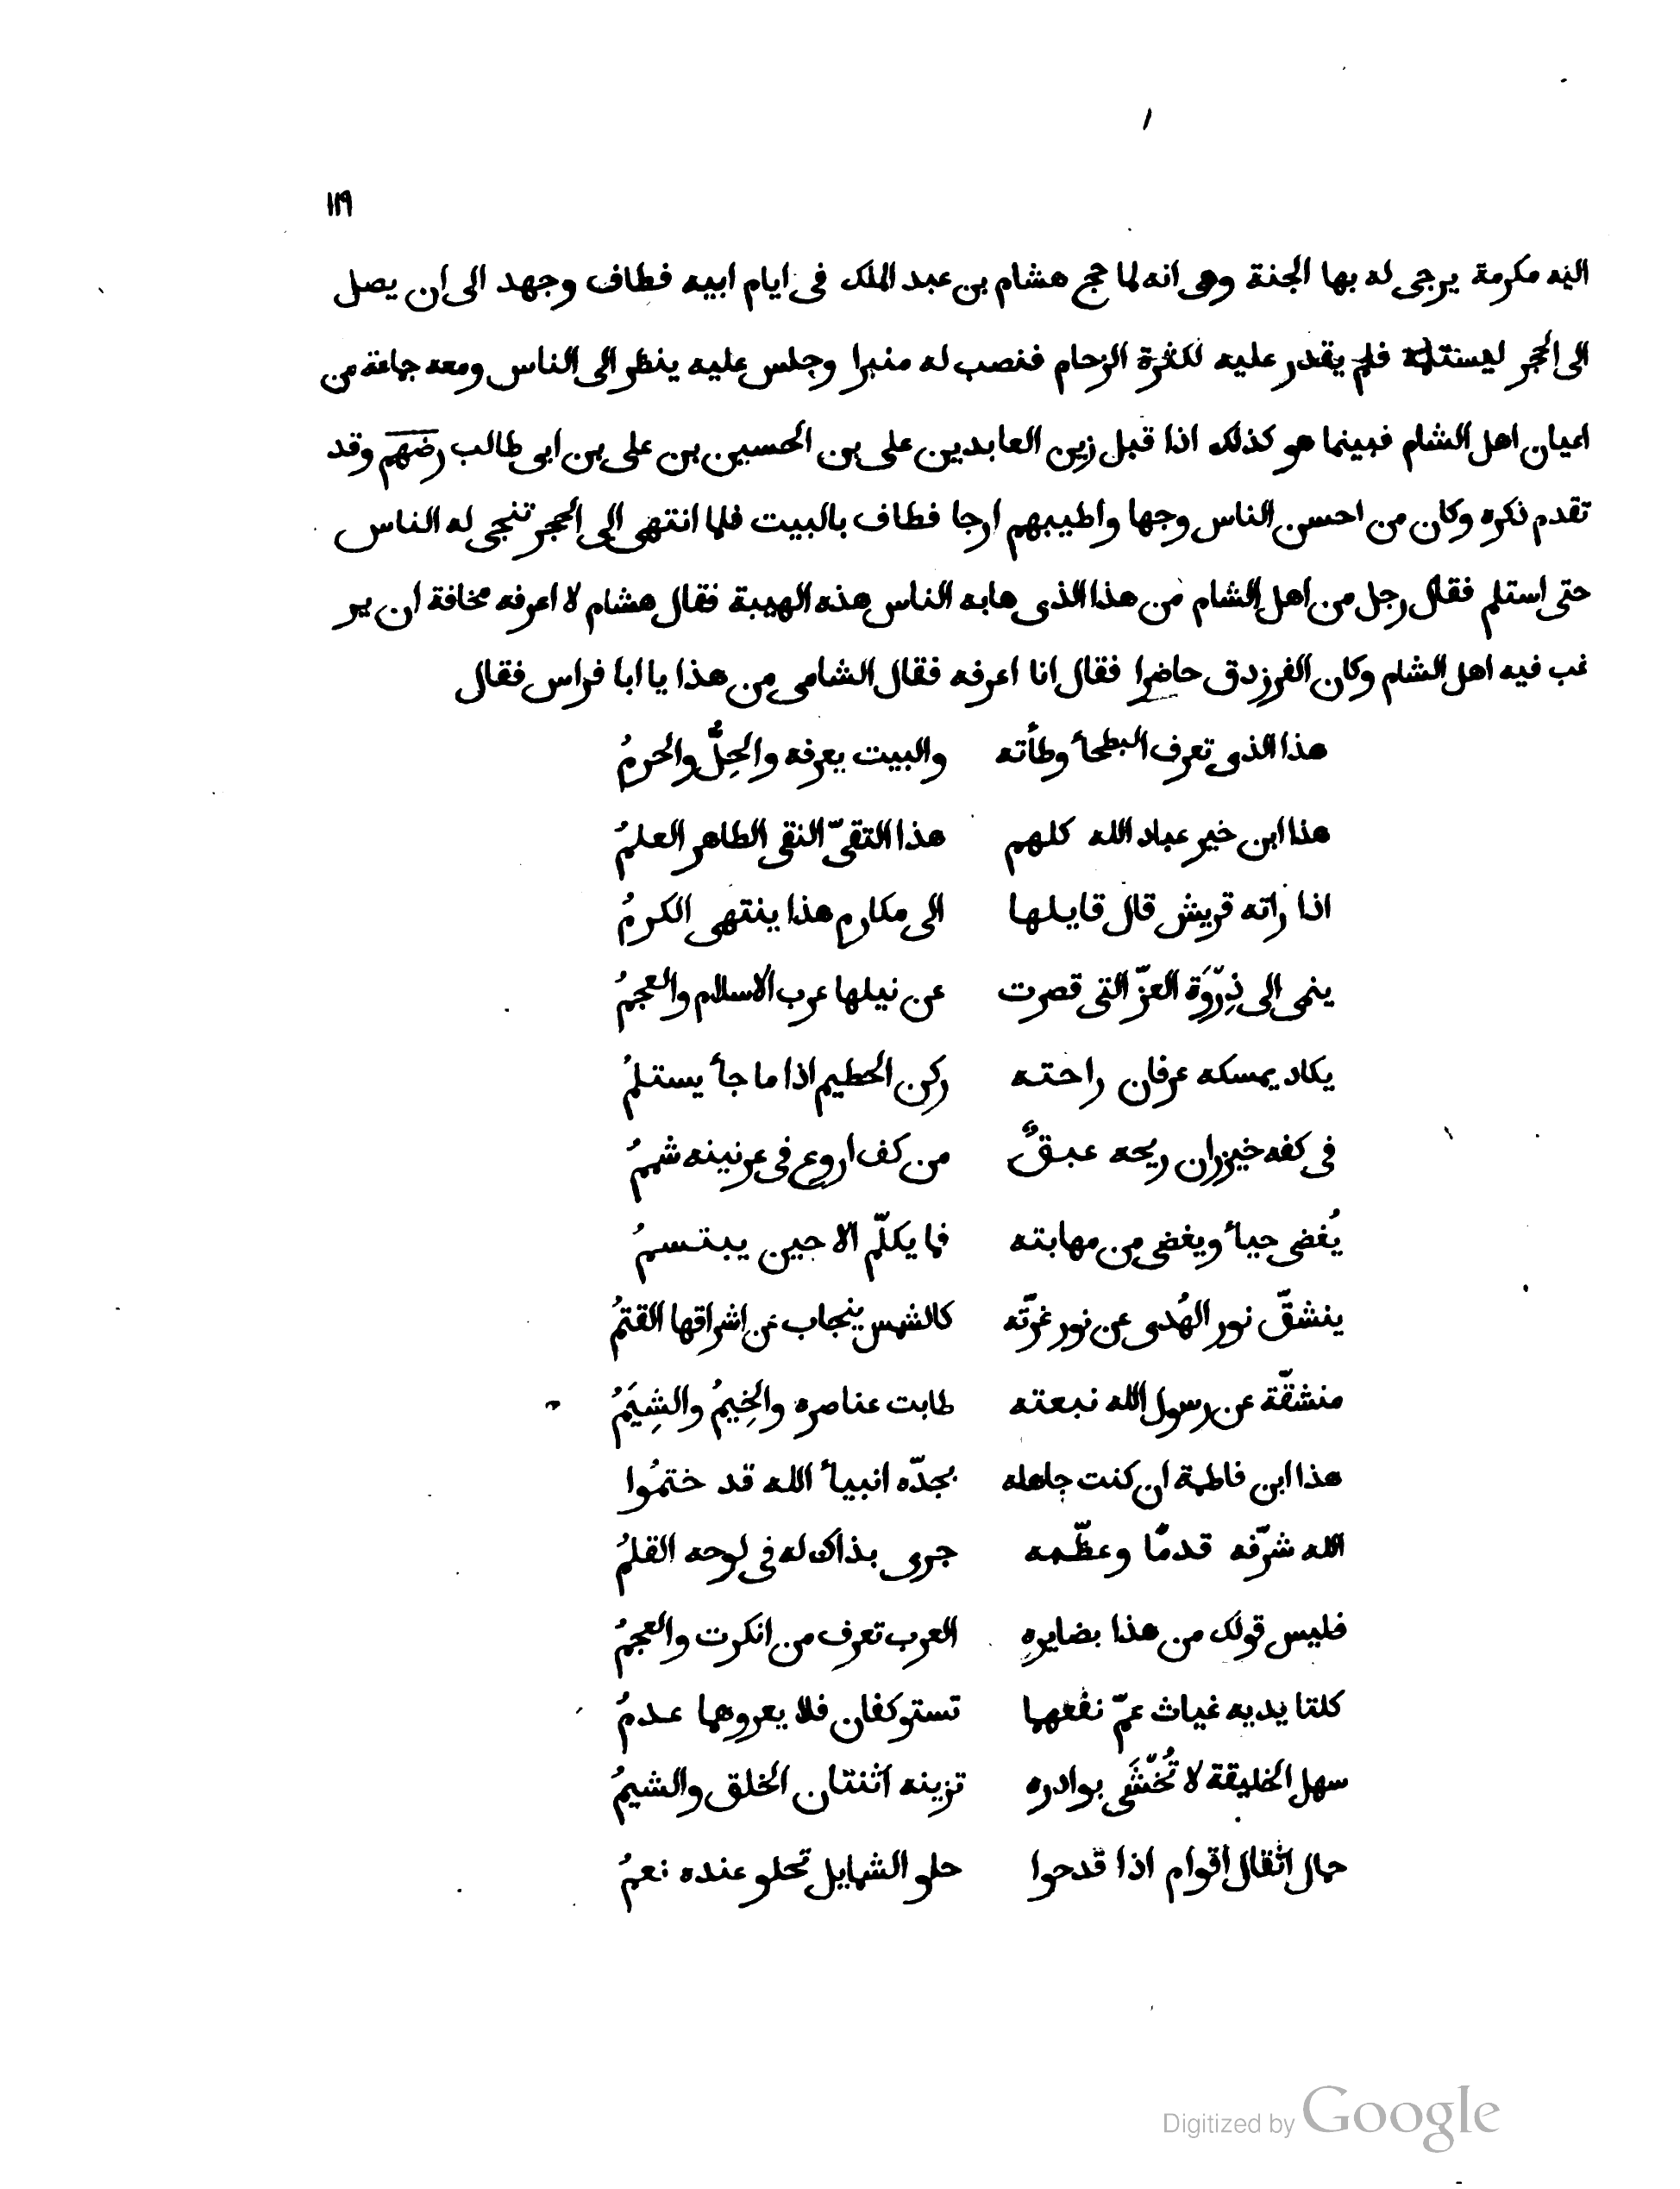 ١١٩
اليه مكرمة يرجى له بها الجنة وهى انه لما حج هشام بن عبد الملك فى ايام ابيه فطاف وجهد الى ان يصل
الى الحجر ليستلمه فلم يقدر عليه لكثرة الزحام فنصب له منبرا وجلس عليه ينظر الى الناس ومعه جاعة من
اعيان اهل الشام فبينما هو كذلك اذا قبل زين العابدين على بن الحسين بن على بن ابى طالب رضهم وقد
تقدم ذكره وكان من احسن الناس وجها واطيبهم ارجا فطاف بالبيت فلما انتهى الى الحجر تنجى له الناس
حتى استلم فقال رجل من اهل الشام من هذا الذى هابه الناس هذه الهيبة فقال هشام لا اعرفه مخافة ان ير
غب فيه اهل الشام وكان الفرزدق حاضرا فقال انا اعرفه فقال الشامى من هذا يا ابا فراس فقال
هذا الذى تعرف البطحأ وطأته والبيت يعرفه والحِلُّ والحرمُ
هذا ابن خير عباد الله كلهم هذا التقىّ النقى الطاهر العلمُ
اذا راته قريش قال قايلها الى مكارم هذا ينتهى الكرمُ
ينمى الى ذِرّوَة العزّ التى قصرت عن نيلها عرب الاسلام والعجمُ
يكاد يمسكه عرفان راحته ركن الحطيم اذا ما جأ يستلمُ
فى كفه خيزران ريحه عبقٌ من كف اروع فى عرنينه شممُ
يُغضى حيأ ويغضى من مهابته فما يكلّم الا حين يبتسمُ
ينشقّ نور الهُدى عن نور غرّته كالشمس ينجاب عن اشراقها القتمُ
منشقّة عن رسول الله نبعته طابت عناصره والخِيمُ والشِيَمُ
هذا ابن فاطمة ان كنت جاهله بجدّه انبيأ الله قد ختمُوا
الله شرّفه قدمًا وعظّمه جرى بذاك له فى لوحه القلمُ
فليس قولك من هذا بضايرهِ العرب تعرف من انكرت والعجمُ
كلتا يديه غياث عمّ نفعهما تستوكفان فلا يعروهما عدمُ
سهل الخليقة لا تُخّشَى بوادره تزينه اثنتان الخلق والشيمُ
حمال اثقال اقوام اذا قدحوا حلو الشمايل تحلو عنده نعمُ
Digitized by Google